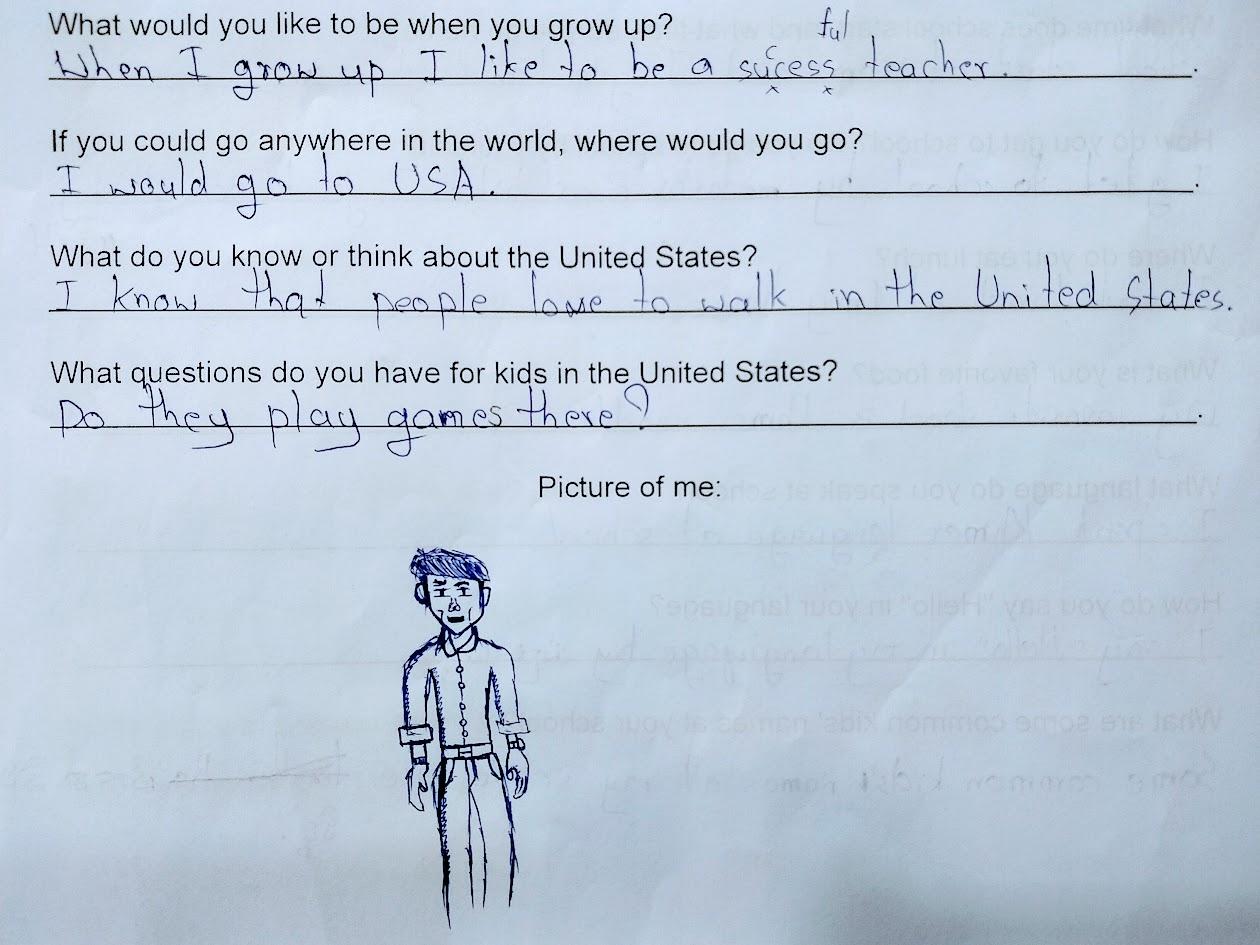 What would you like to be when you grow up?
c ful
When I grow up I like to be a sucess teacher.
If you could go anywhere in the world, where would you go?
I would go to USA.
What do you know or think about the United States?
I know that people love to walk in the United States.
What questions do you have for kids in the United States?
Do they play games there?
Picture of me: